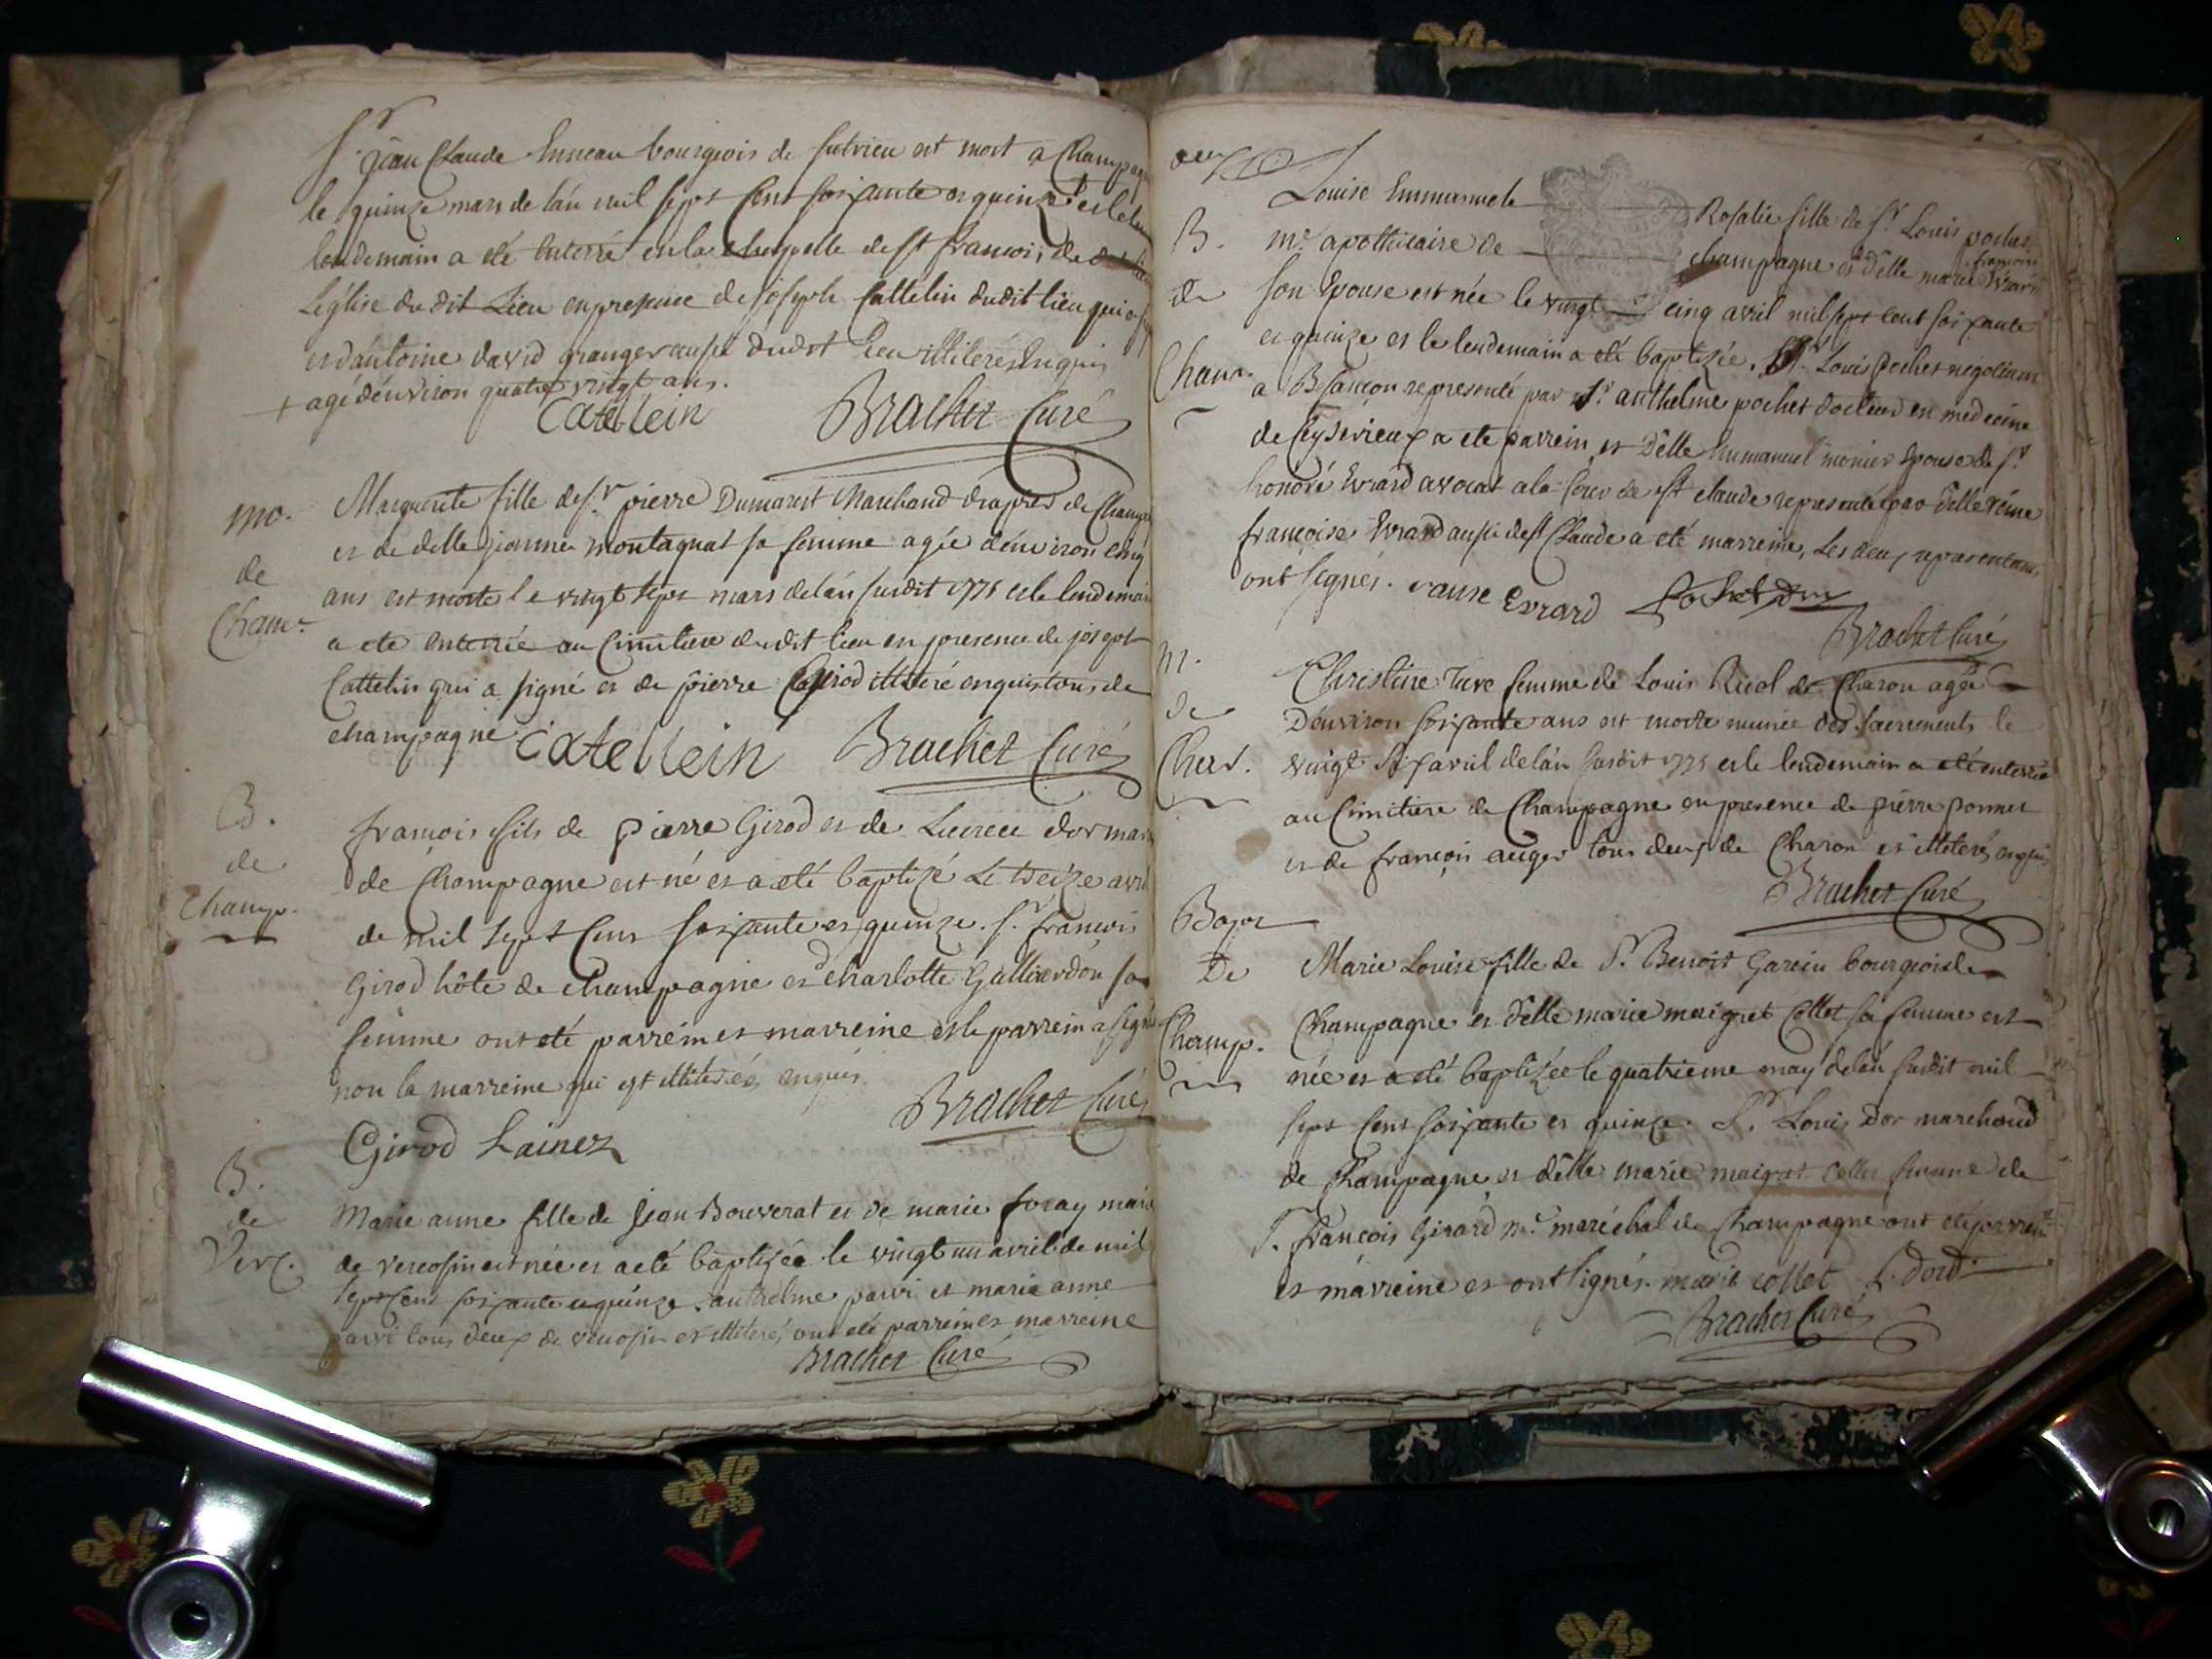 Sr. jean Claude bourgeois de est mort a Champagne
le quinze mars de l'an mil sept Cent soixante et quinze + et le
lendemain a eté enterré en la chappelle de st françois de
L'église du dit Lieu en presence de joseph Cattelin dudit lieu qui a
et d'antoine david granger aussi dudit lieu illiteré enquis
+ agé d'environ quatre vingt ans.
Catellein Brachet Curé
mo.
de
Cham.
Marguerite fille de sr. pierre Dumarest Marchand drapier de Champ
et de delle jeanne montagnat sa femme agée d'environ cinq
ans est morte le vingt sept mars de l'an susdit 1775 et le lendemain
a eté enterrée au Cimitiere du dit lieu en presence de joseph
Cattelin qui a signé et de pierre Girod illiteré enquis tous de
champagne Catellein Brachet Curé
B.
de
Champ.
françois fils de pierre Girod et de Lucrece dor
de Champagne est né et a eté baptizé Le treize avril
de mil sept Cens soixante et quinze. sr. françois
Girod hôte de champagne et charlotte Galliardon sa
femme ont eté parrein et marreine et le parrein a signé
non la marreine qui est illiterée, enquis.
Brachet Curé
Girod Lainez
B.
de
Verc.
Marie anne fille de jean Bouverat et de marie foray
de vercosin est née et a eté baptizée le vingt un avril de mil
sept Cens soixante et quinze. anthelme parvi et marie anne
parvi tous deux de vercosin et illiterés, ont eté parrein et marreine
Brachet Curé
B.
de
Cham.
Louise Emmanuele Rosalie fille de sr. Louis pochet
me. apothicaire de champagne et d'elle marie françoise Evrard
son Epouse est née le vingt cinq avril mil sept cent soixante
et quinze et le lendemain a eté baptizée. Sr. Louis Pochet negotiant
a Besançon representé par sr. anthelme pochet docteur en medecine
de Ceyserieux a ete parrein, et Delle Emmanuel monier Epouse de sr.
honoré Evrard avocat a la Cour de st claude representée par delle reine
françoise Evrard aussi de st Claude a eté marreine, Les deux representans
ont signés. Evrard Pochet
Brachet Curé
m.
de
Char.
Christine Ture femme de Louis Ruol de Charon agée
d'environ soixante ans est morte munie des sacrements le
vingt six avril de l'an susdit 1775 et le lendemain a eté enterrée
au Cimitiere de Champagne en presence de pierre ponnet
et de françois auger tous deux de Charon et illiterés enquis
Brachet Curé
De
Champ.
Marie Louise fille de Sr. Benoit Garcin bourgeois de
Champagne et d'elle marie maigret Collet sa femme est
née et a eté baptizée le quatrieme may de l'an susdit mil
sept Cent soixante et quinze. Sr. Louis Dor marchand
de Champagne et delle marie maigret Collet femme de
Sr. françois Girard me. maréchal de Champagne ont eté parrein
et marreine et ont signés. marie collet L. dord
Brachet Curé